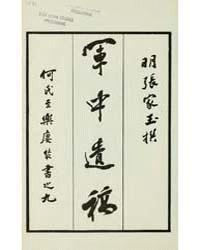 明張家玉撰
軍中遺稿
何氏至樂廔叢書之九